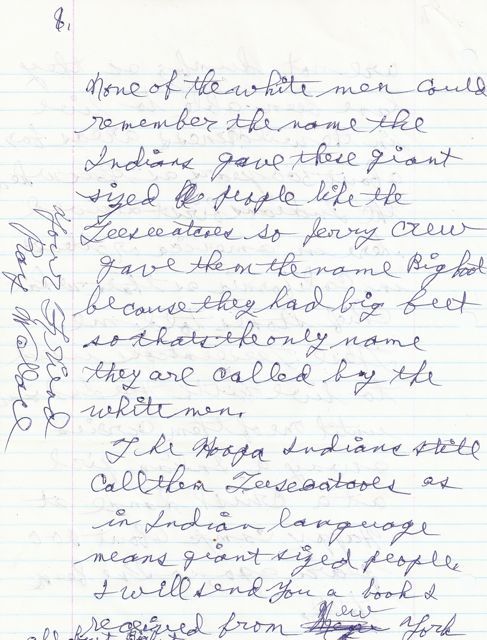 8.
None of the white men could
remember the name the
Indians gave these giant
sized people like the
so Jerry Crew
gave them the name Big foot
because they had big feet
so thats the only name
they are called by the
white men.
The Hoopa Indians still
call them as
in Indian language
means giant sized people.
I will send you a book I
received from New York
Your Friend
Ray Wallace